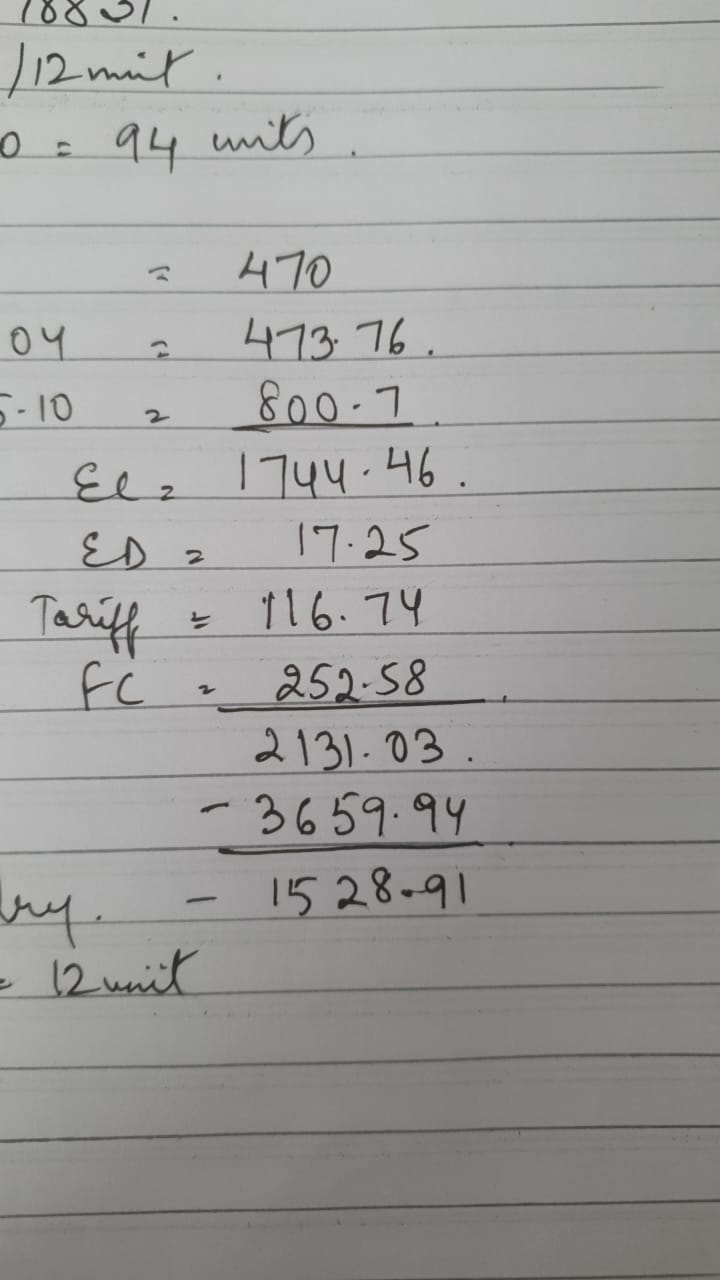 18831.
/12 unit.
0 = 94 units.
= 470
04 = 473.76.
5.10 = 800.7.
El = 1744.46.
ED = 17.25
Tariff = 116.74
FC = 252.58.
2131.03.
- 3659.94.
- 1528.91
= 12 unit